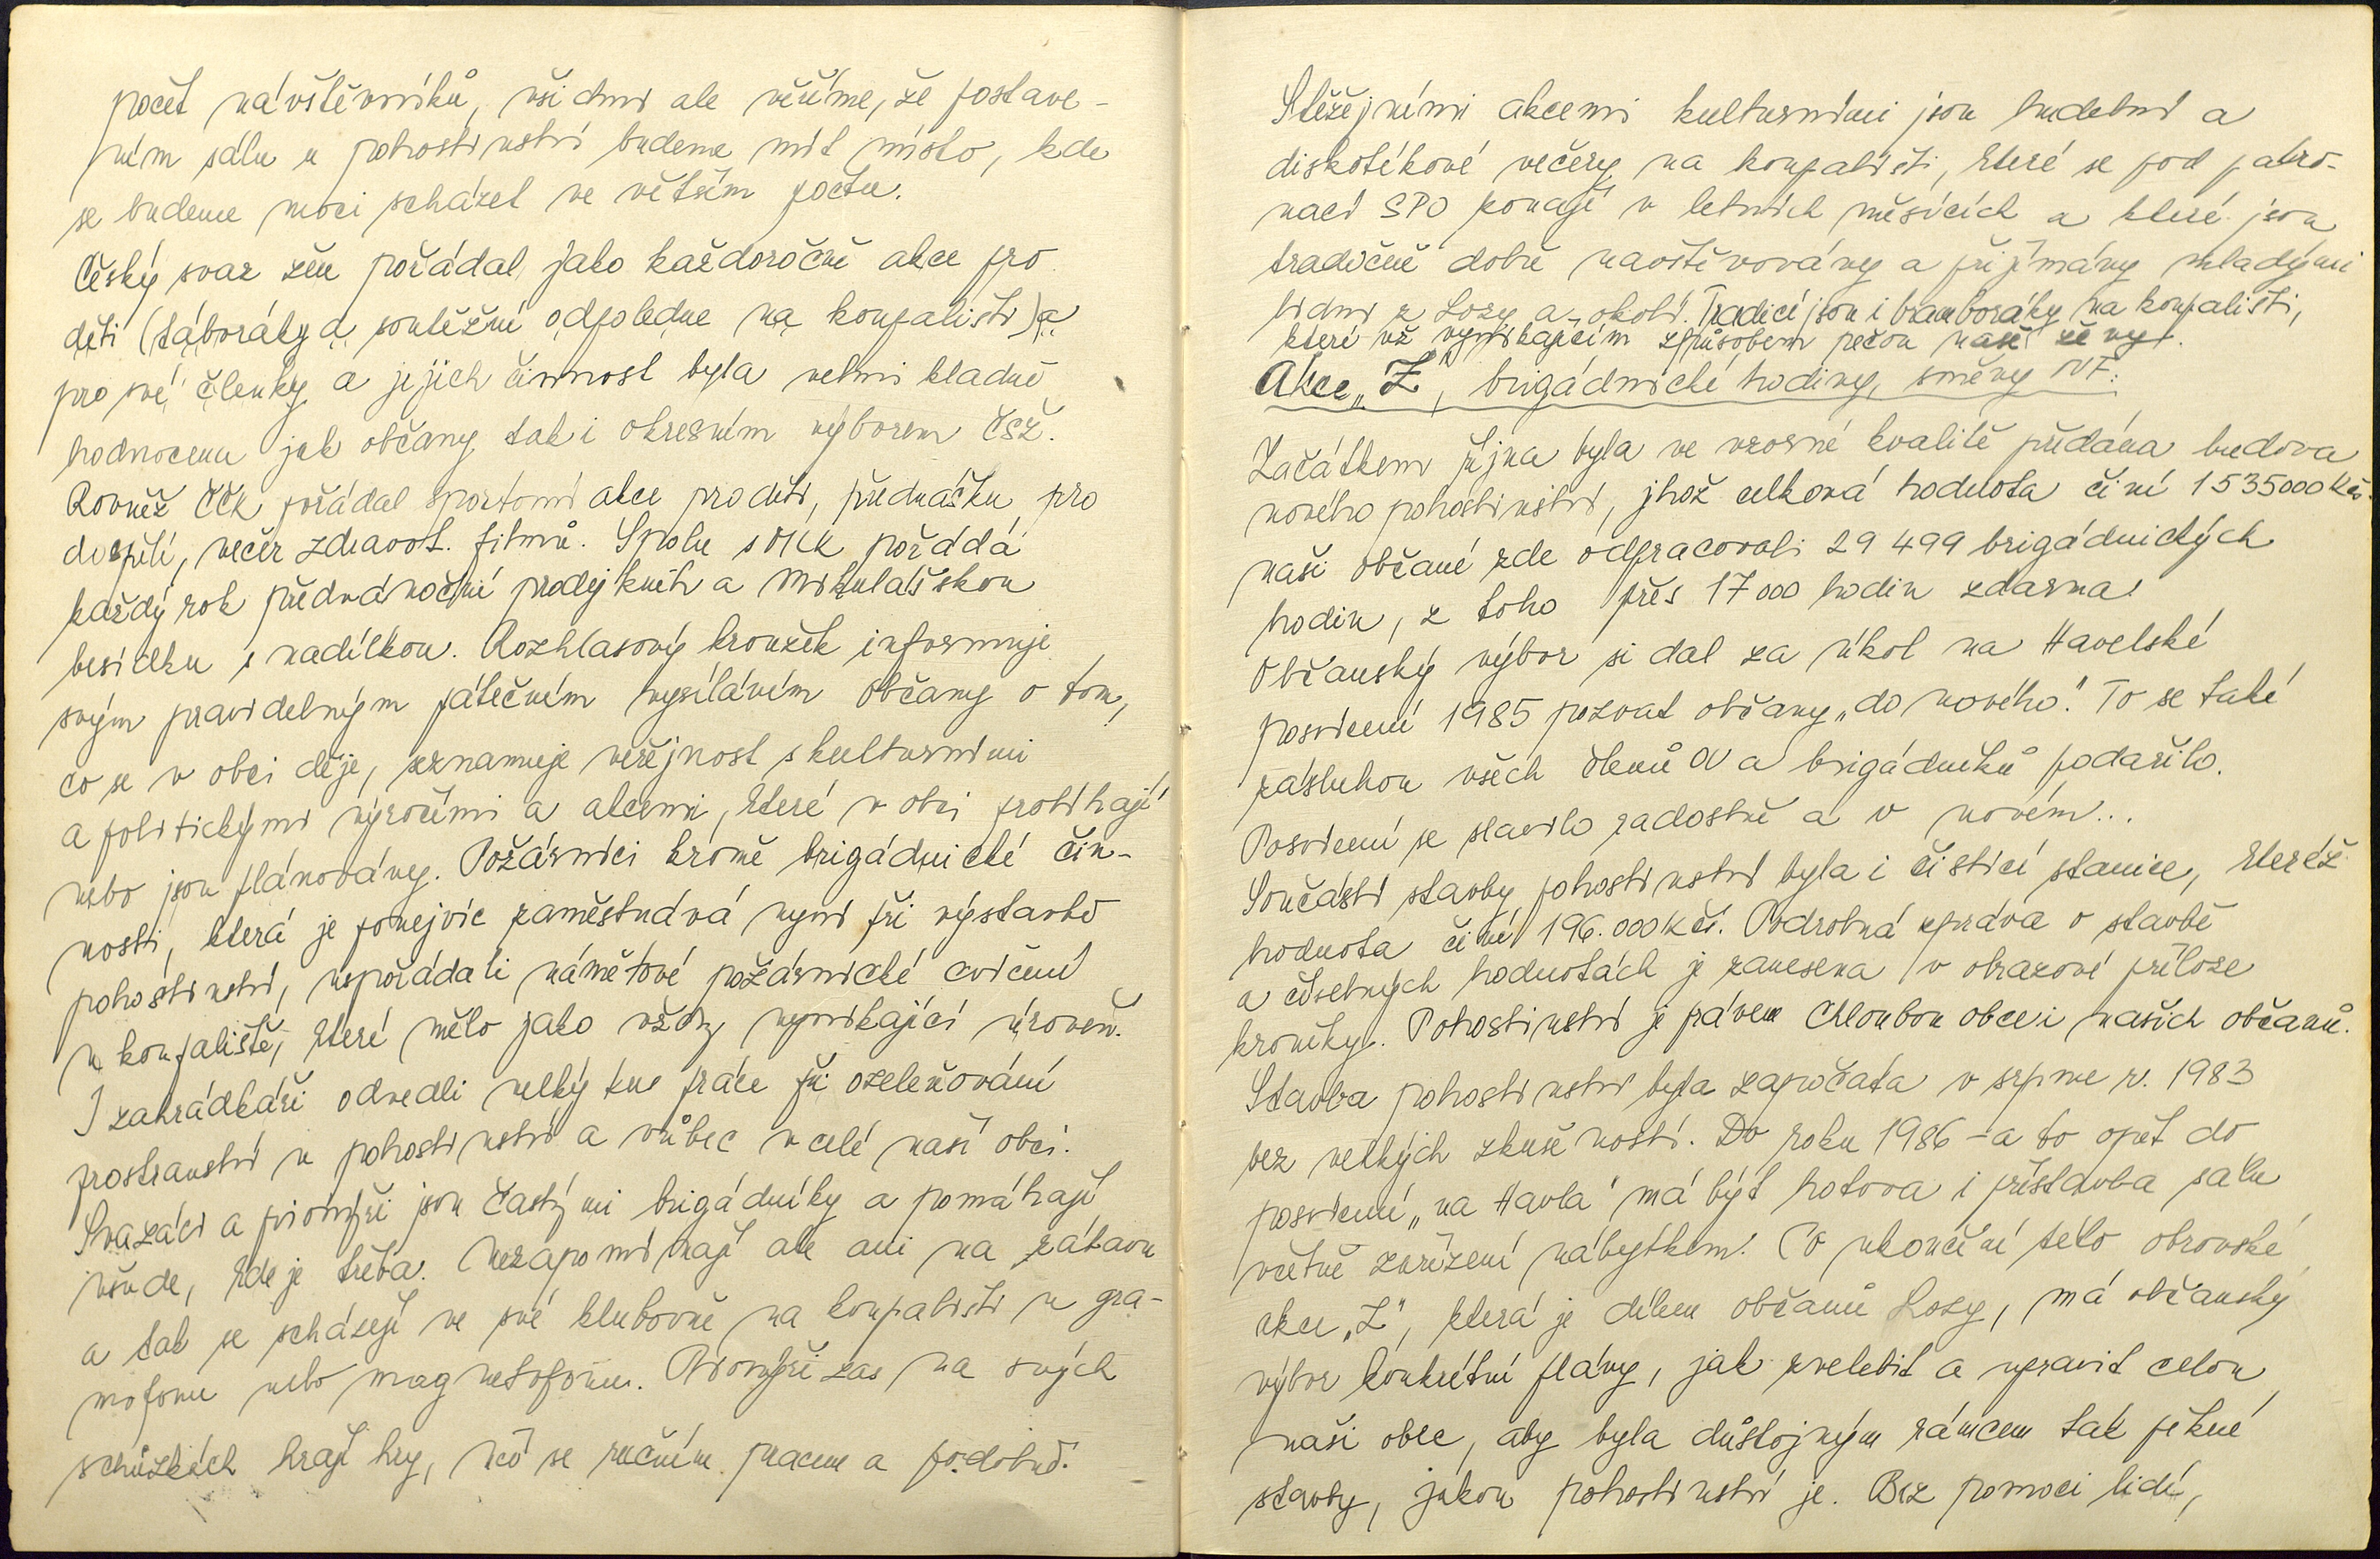 počet návštěvníků, všichni ale věříme, že postave-
ním sálu u pohostinství budeme mít místo, kde
se budeme moci scházet ve větším počtu.
Český svaz žen pořádal, jako každoročně akce pro
děti (táboráky a soutěžní odpoledne na koupališti) a
pro své členky a jejich činnost byla velmi kladně
hodnocena jak občany tak i okresním výborem ČSŽ.
Rovněž ČČK pořádal sportovní akce pro děti, přednášku pro
dospělé, večer zdravot. filmů. Spolu s MLK pořádá
každý rok předvánoční prodej knih a Mikulášskou
besídku s nadílkou. Rozhlasový kroužek informuje
svým pravidelným pátečním vysíláním občany o tom,
co se v obci děje, seznamuje veřejnost s kulturními
a politickými výročími a akcemi, které v obci probíhají
nebo jsou plánovány. Požárníci kromě brigádnické čin-
nosti, která je ponejvíc zaměstnává nyní při výstavbě
pohostinství, uspořádali námětové požárnické cvičení
u koupaliště, které mělo jako vždy vynikající úroveň.
I zahrádkáři odvedli velký kus práce při ozeleňování
prostranství u pohostinství a vůbec v celé naší obci.
Svazáci a pionýři jsou častými brigádníky a pomáhají
všude, kde je třeba. Nezapomínají ale ani na zábavu
a tak se scházejí ve své klubovně na koupališti u gra-
mofonu nebo magnetofonu. Pionýři zas na svých
schůzkách hrají hry, učí se ručním pracem a podobně.
Stěžejními akcemi kulturními jsou hudební a
diskotékové večery na koupališti, které se pod patro-
nací SPO konají v letních měsících a které jsou
tradičně dobře navštěvovány a přijímány mladými
lidmi z Lozy a okolí. Tradicí jsou i bramboráky na koupališti,
které už vynikajícím způsobem pečou naše ženy.
Akce „Z", brigádnické hodiny, směny NF:
Začátkem října byla ve vzorné kvalitě předána budova
nového pohostinství, jehož celková hodnota činí 1535000 Kčs.
naši občané zde odpracovali 29 499 brigádnických
hodin, z toho přes 17 000 hodin zdarma.
Občanský výbor si dal za úkol na Havelské
posvícení 1985 pozvat občany „do nového". To se také
zásluhou všech členů OV a brigádníků podařilo.
Posvícení se slavilo radostně a v novém...
Součástí stavby pohostinství byla i čistící stanice, kteréž
hodnota činí 196.000 Kčs. Podrobná zpráva o stavbě
a číselných hodnotách je zanesena v obrazové příloze
kroniky. Pohostinství je právem Chloubou obce i našich občanů.
Stavba pohostinství byla započata v srpnu r. 1983
bez velkých zkušeností. Do roku 1986 - a to opět do
posvícení „na Havla" má být hotova i přístavba sálu
včetně zařízení nábytkem. Po ukončení této obrovské
akce „Z", která je dílem občanů Lozy, má občanský
výbor konkrétní plány, jak zvelebit a upravit celou
naši obec, aby byla důstojným rámcem tak pěkné
stavby, jakou pohostinství je. Bez pomoci lidí,